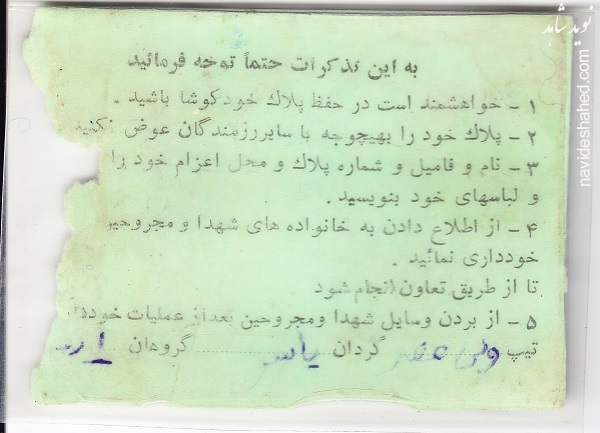 به این تذکرات حتماً توجه فرمائید
۱ - خواهشمند است در حفظ پلاك خود کوشا باشید .
۲ - پلاك خود را بهیچوجه با سایررزمندگان عوض نکنید
۳ - نام و فامیل و شماره پلاك و محل اعزام خود را
و لباسهای خود بنویسید .
۴ - از اطلاع دادن به خانواده های شهدا و مجروحین
خودداری نمائید .
تا از طریق تعاون انجام شود
۵ - از بردن وسایل شهدا ومجروحین بعداز عملیات خوددا
تیپ ولی عصر گردان یاسر گروهان
نوید شاهد
navideshahed.com